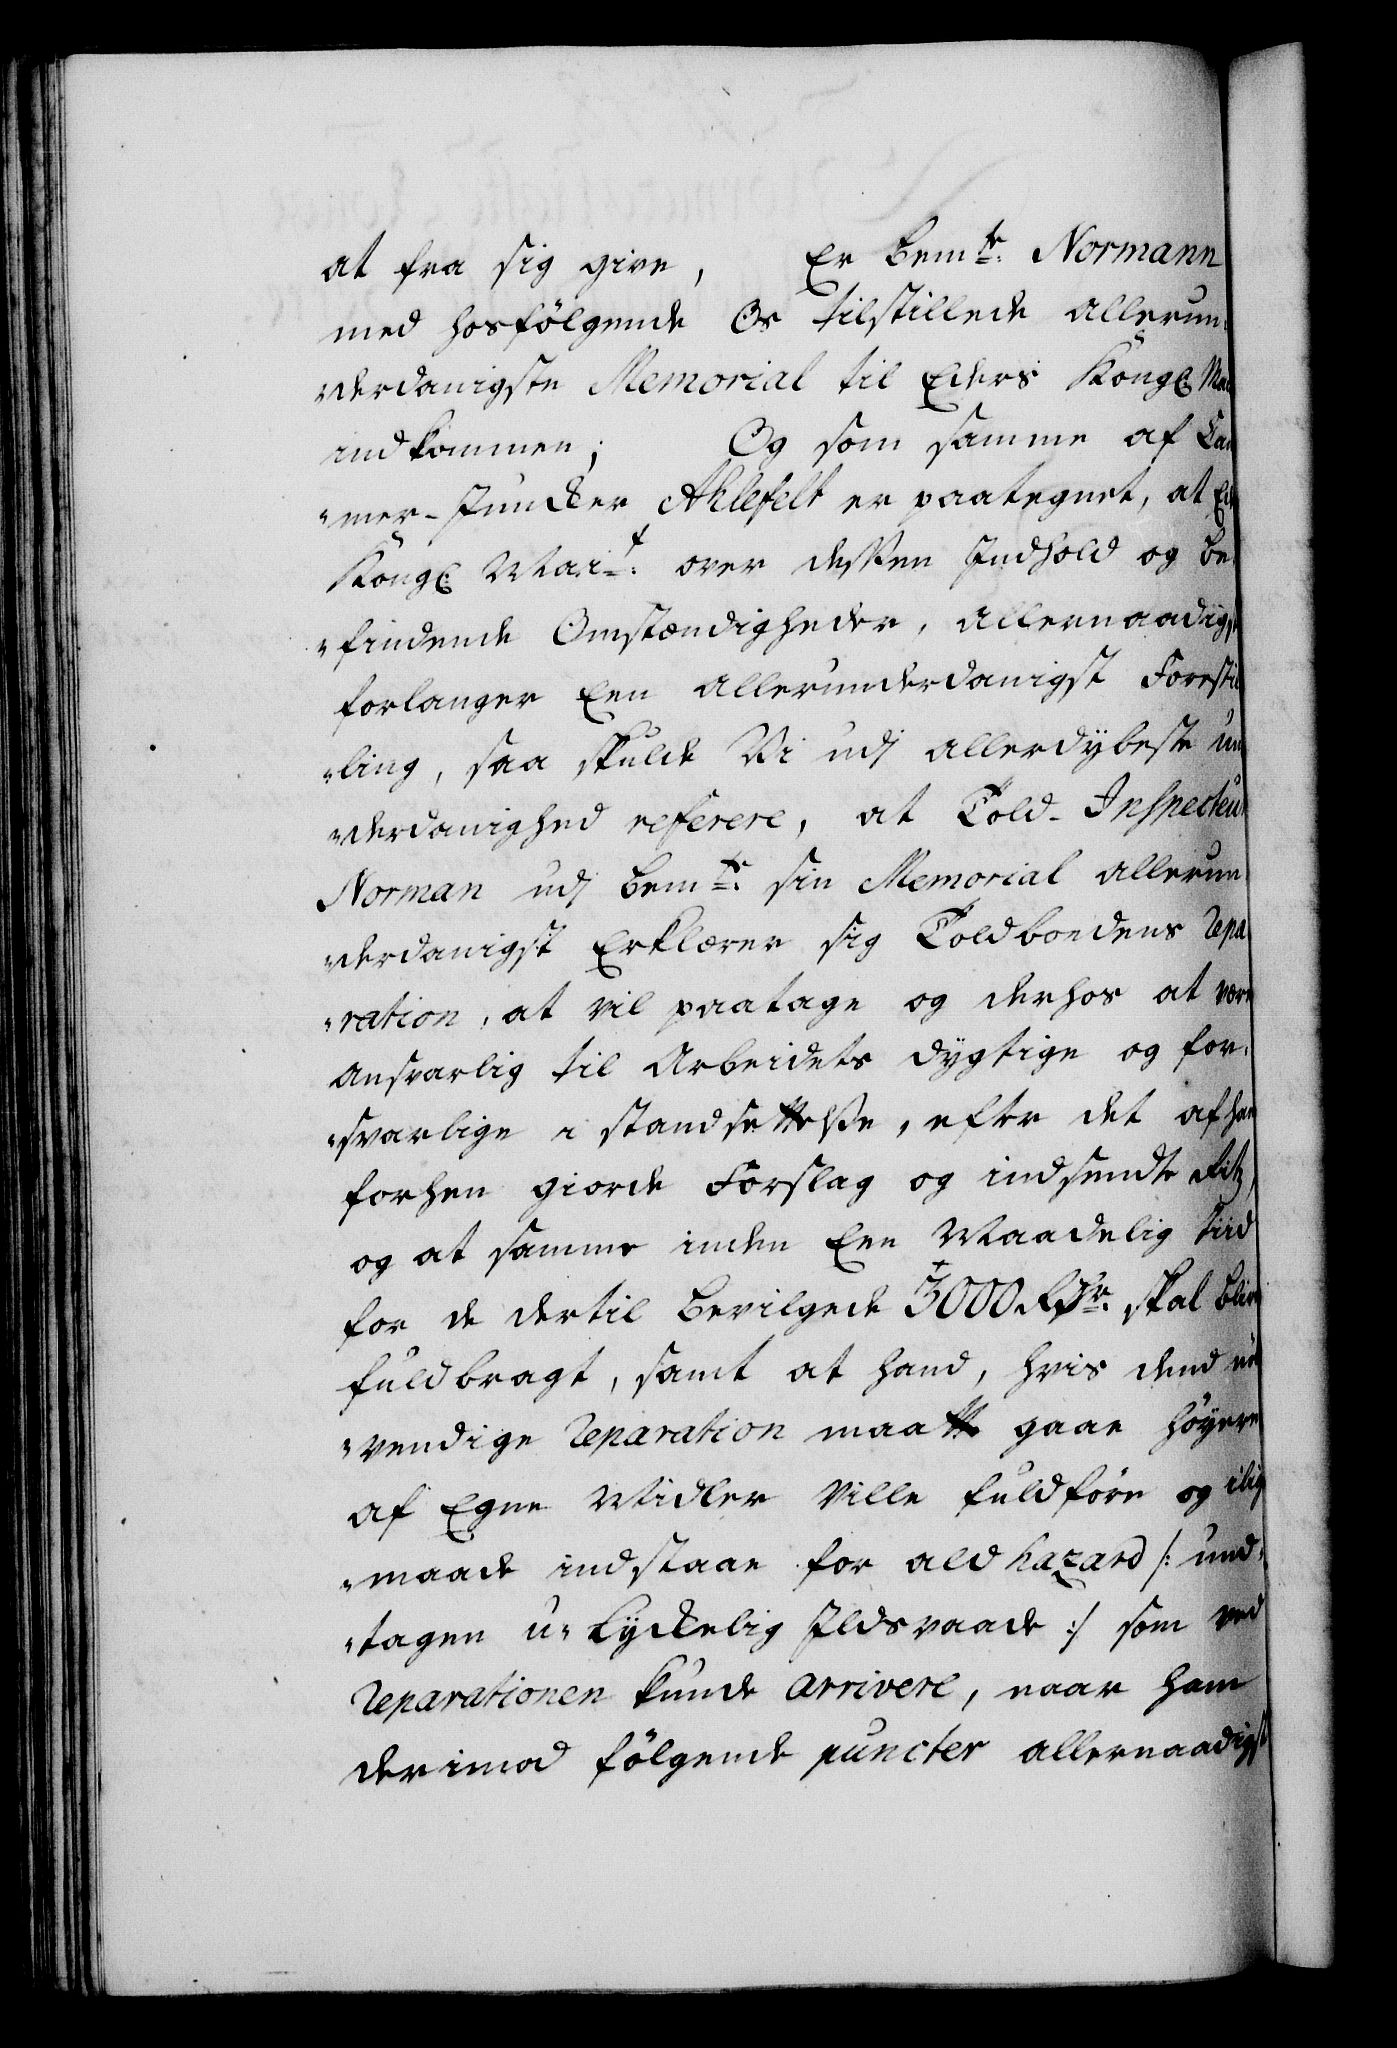 at fra sig give, Er bemte. Normann
med hosfölgende Os tilstillede allerun-
„derdanigste Memorial til Eders Kongl. Mai
indkommen; Og som samme af Cam
„mer-Juncker Ahlefelt er paategnet, at Ed
Kongl. Mait. over dessen Indhold og be-
„findende Omstændigheder, allernaadigst
forlanger Een allerunderdanigst Forestil
„ling, saa skulde Vi udj allerdybeste un
„derdanighed referere, at Told-Inspecteur
Norman udj bemte. sin Memorial allerun
„derdanigst Erklærer sig Toldboedens Repa
„ration, at vil paatage og derhos at være
ansvarlig til Arbeidets dygtige og for-
„svarlige i standsættelse, efter det af ham
forhen giorde Forslag og indsendte Ritz,
og at samme inden Een Maadelig Tiid
for de dertil bevilgede 3000 Rdr. skal blive
fuldbragt, samt at hand, hvis dend nöd
„vendige Reparation maatte gaae höyere
af Egne Midler ville fuldföre og ilige
„maade indstaae for ald hazard /: und-
„tagen u-lyckelig Ildsvaade :/ som ved
Reparationen kunde arrivere, naar ham
derimod fölgende puncter allernaadigst